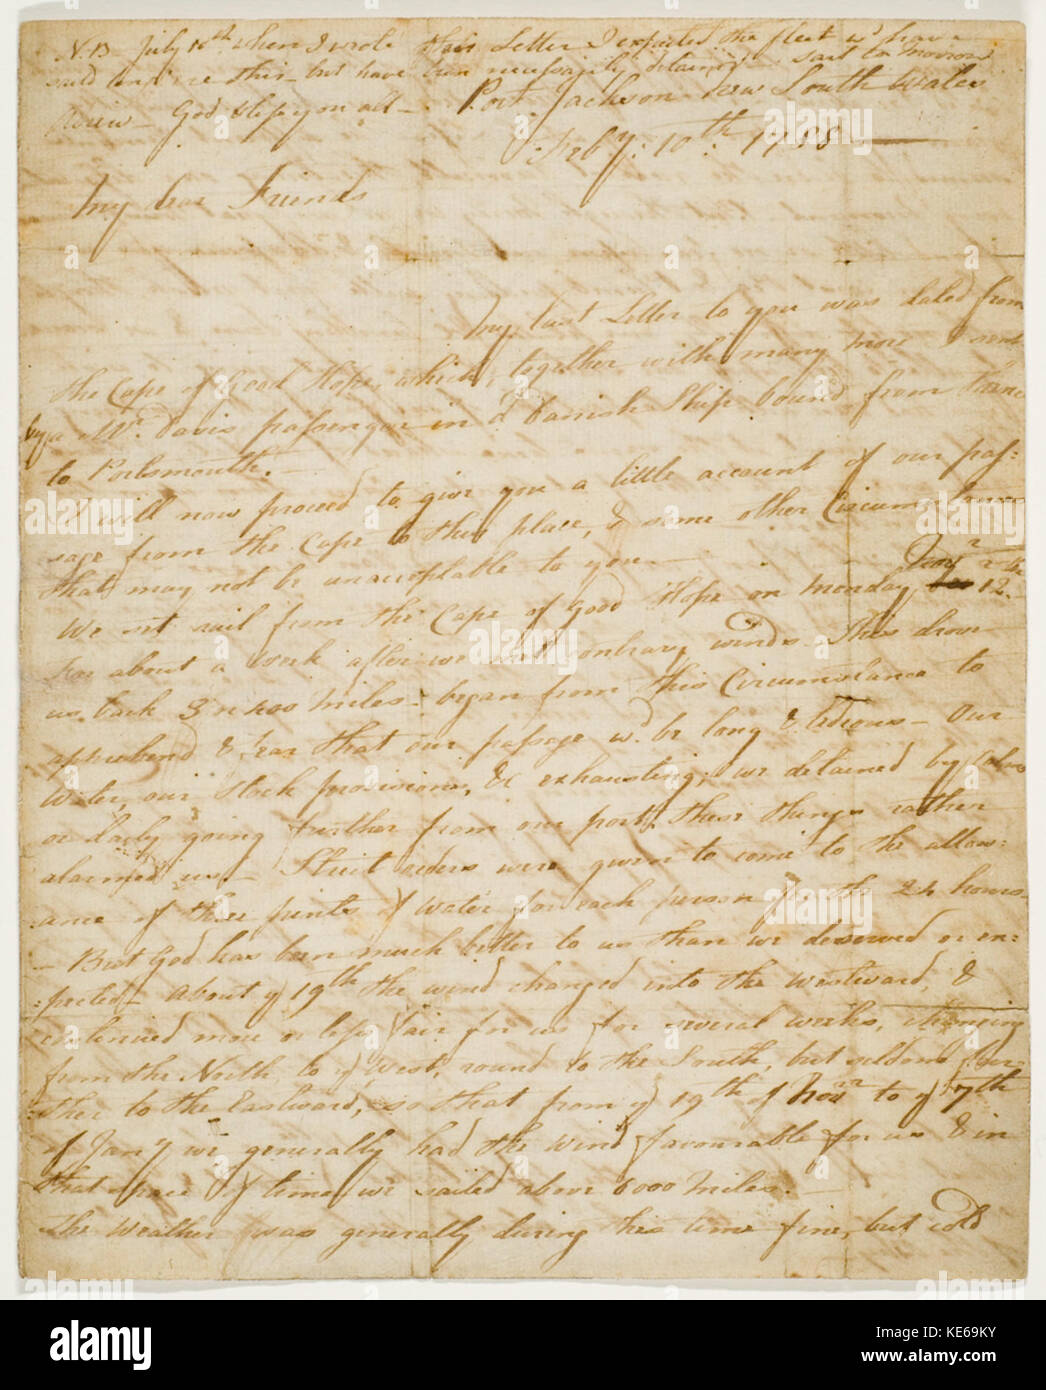 N.B July 10th when I wrote this Letter I expected the fleet wd. have
sail'd before this - but have been necessarily detain'd - sail tomorrow
Adieu - God bless you all -
Port Jackson New South Wales
Feby: 10th: 1788
My dear Friends
My last Letter to you was dated from
the Cape of Good Hope, which, together with many more I sent
by a Mr. Davis passenger in a Danish Ship bound from thence
to Portsmouth. -
I will now proceed to give you a little account of our pas:
sage from the Cape to this place, & some other Circumstances
that may not be unacceptable to you. -
We set sail from the Cape of Good Hope on Monday, Novr. 12th.
For about a week after we had contrary winds. This drove
us back 3 or 400 Miles. began from this Circumstance to
apprehend & fear that our passage wd. be long & tedious - Our
Water, our Stock provisions, &c exhausting; we detained by Calms
or daily going further from our port, these things rather
alarmed us. - Strict orders were given to come to the allow:
ance of three pints of water for each person for the 24 hours.
- But God has been much better to us than we deserved or ex:
:pected - About ye 19th the wind changed into the Westward, &
continued more or less fair for us for several weeks, changing
from the North to ye West, round to the South, but seldom fur:
ther to the Eastward, so that from ye 19th of Novr to ye 7th
of Jany we generally had the wind favourable for us & in
that space of time, we sailed above 6000 Miles. -
The Weather was generally during this time fine, but cold
a
alamy
alamy
KE69KY
www.alamy.com